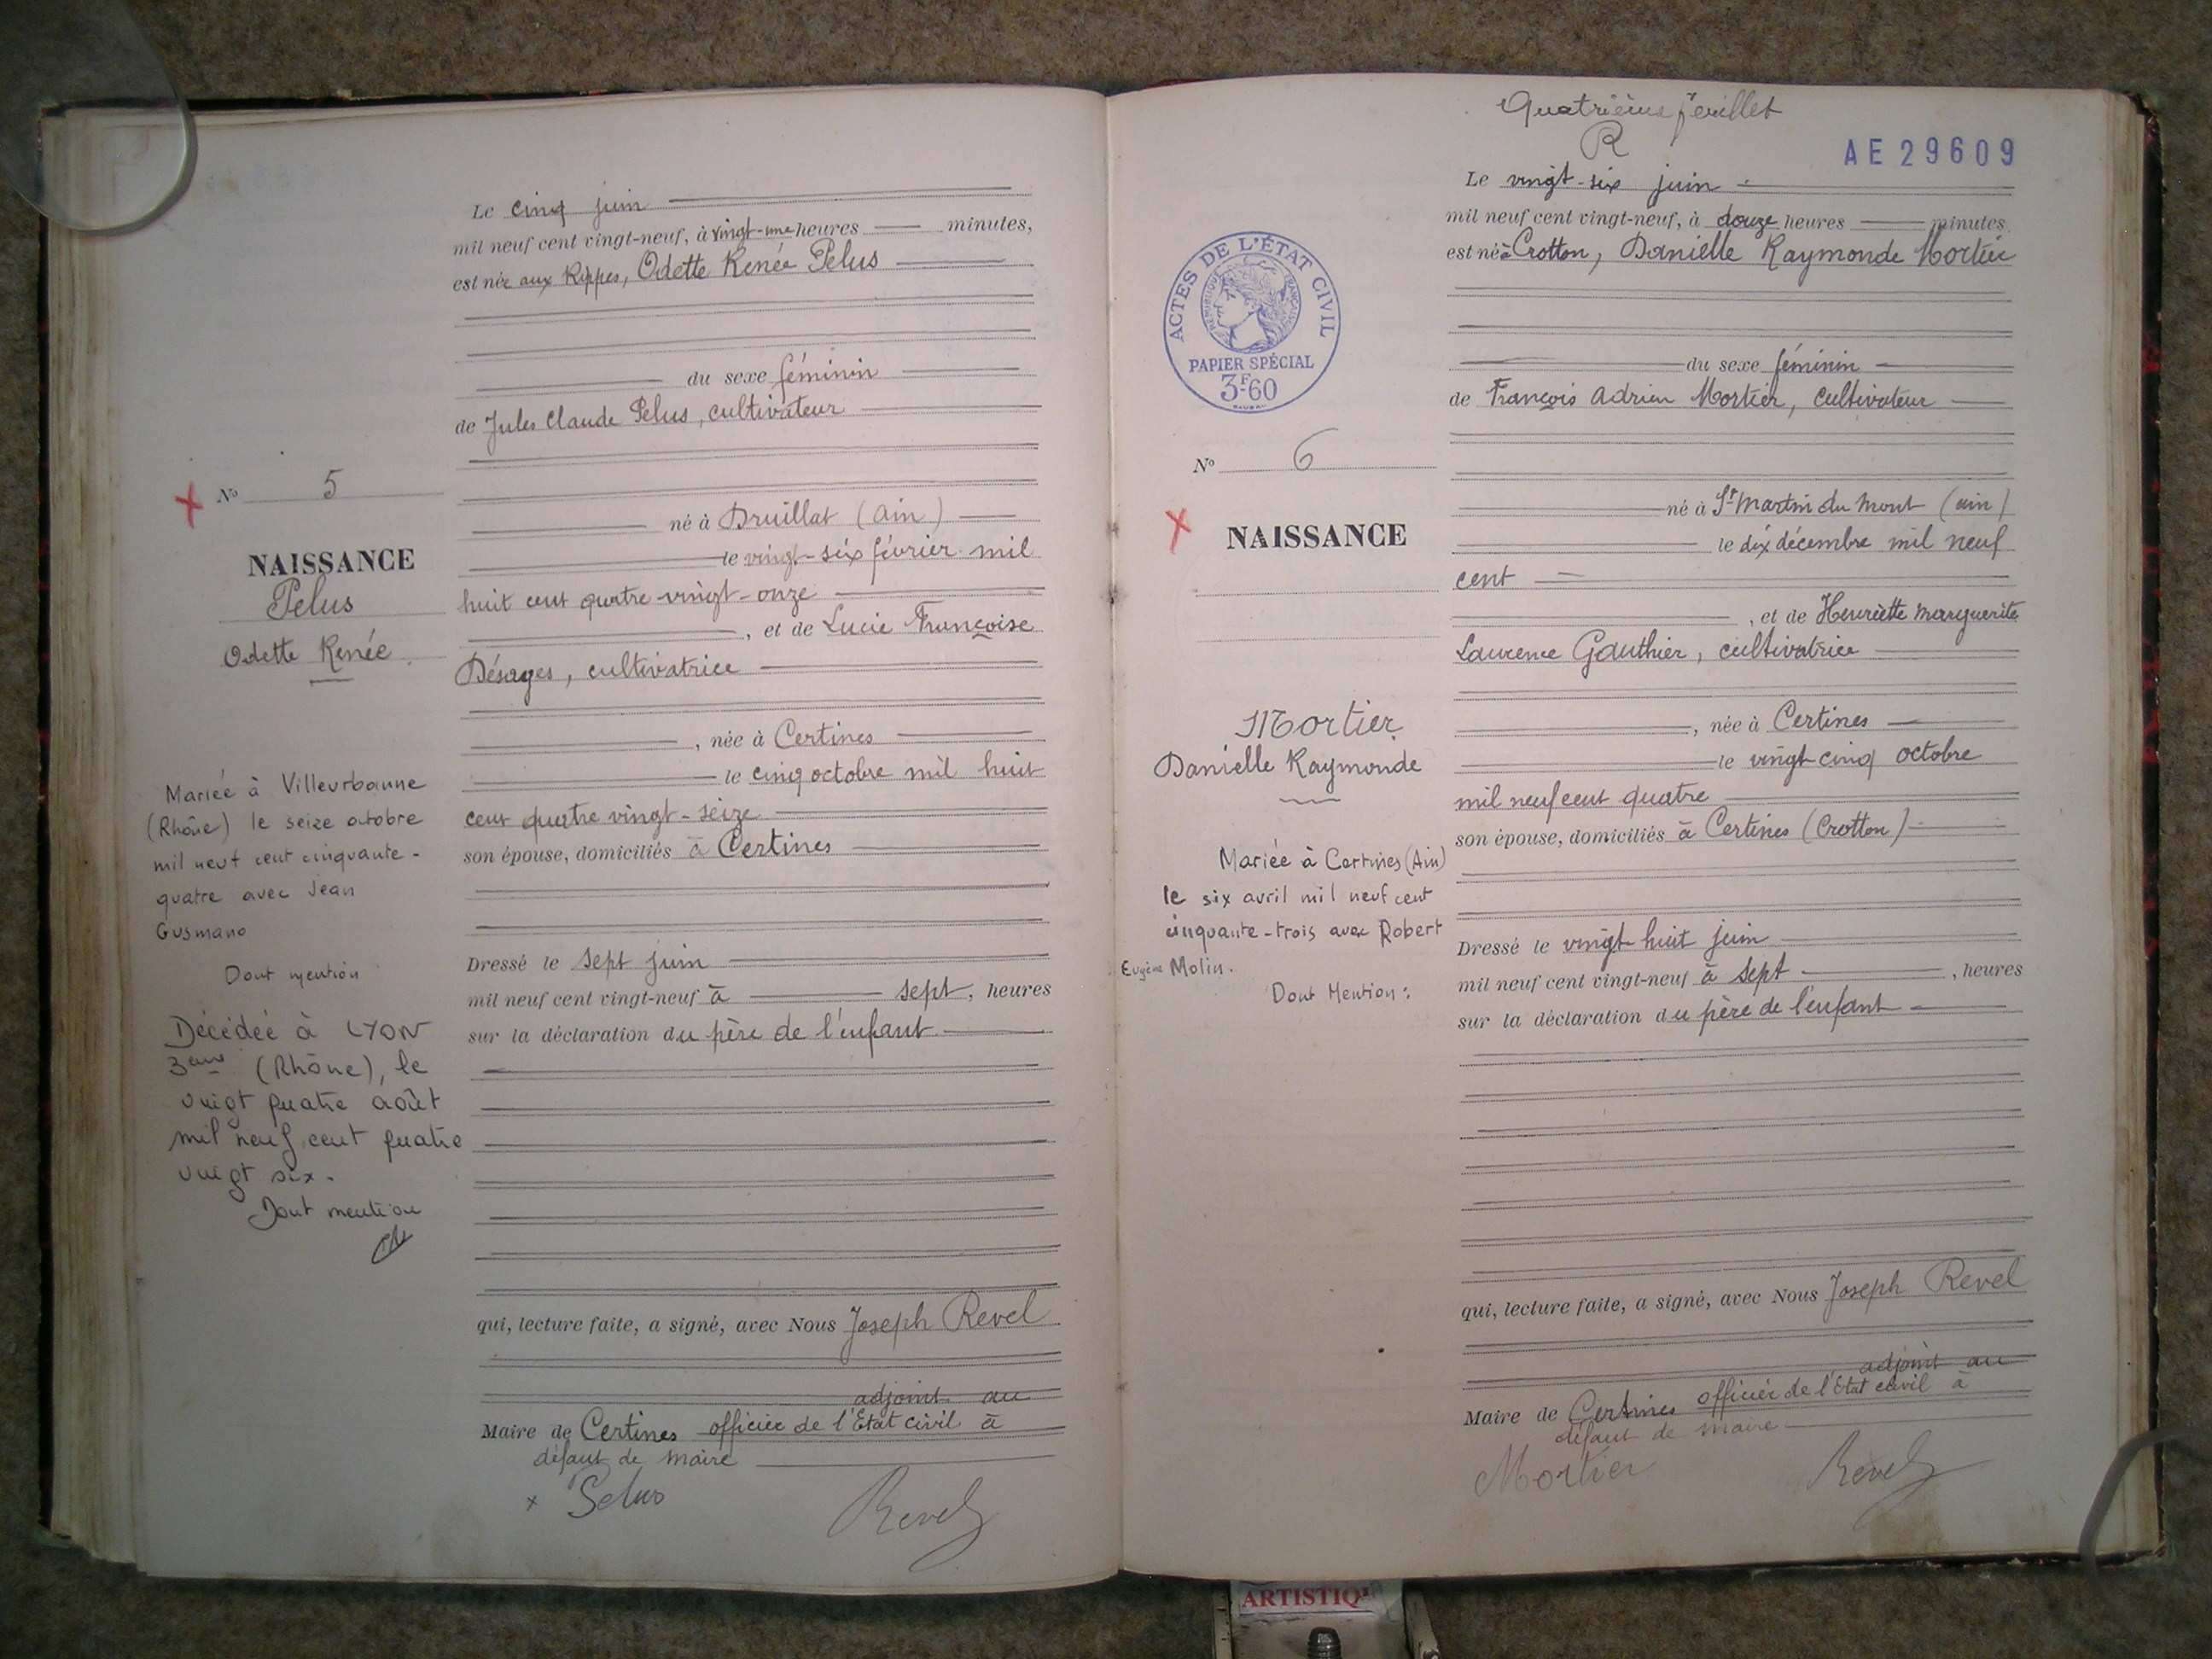 Le cinq juin
mil neuf cent vingt-neuf, à vingt-une heures minutes,
est née aux Rippes, Odette Renée Pelus
du sexe féminin
de Jules Claude Pelus, cultivateur
né à Druillat (Ain)
le vingt-six février mil
huit cent quatre-vingt-onze
, et de Lucie Françoise
Désages, cultivatrice
, née à Certines
le cinq octobre mil huit
cent quatre vingt-seize
son épouse, domiciliés à Certines
Dressé le sept juin
mil neuf cent vingt-neuf à sept, heures
sur la déclaration du père de l'enfant
qui, lecture faite, a signé, avec Nous Joseph Revel
adjoint au
Maire de Certines officier de l'Etat civil à
défaut de maire
x Pelus Revel
No 5
NAISSANCE
Pelus
Odette Renée
Mariée à Villeurbanne
(Rhône) le seize octobre
mil neuf cent cinquante-
quatre avec Jean
Gusmano
Dont mention
Décédée à LYON
3eme (Rhône), le
vingt quatre août
mil neuf cent quatre
vingt six.
Dont mention
Quatrième feuillet
R
AE 29609
Le vingt-six juin
mil neuf cent vingt-neuf, à douze heures minutes
est née à Crotton, Danielle Raymonde Mortier
du sexe féminin
de François Adrien Mortier, cultivateur
né à St Martin du Mont (ain)
le dix décembre mil neuf
cent
, et de Henriette Marguerite
Laurence Gauthier, cultivatrice
, née à Certines
le vingt-cinq octobre
mil neuf cent quatre
son épouse, domiciliés à Certines (Crotton)
Dressé le vingt-huit juin
mil neuf cent vingt-neuf à sept, heures
sur la déclaration du père de l'enfant
qui, lecture faite, a signé, avec Nous Joseph Revel
adjoint au
Maire de Certines officier de l'Etat civil à
défaut de maire
Mortier Revel
ACTES DE L'ÉTAT CIVIL
RÉPUBLIQUE FRANÇAISE
PAPIER SPÉCIAL
3F60
No 6
NAISSANCE
Mortier
Danielle Raymonde
Mariée à Certines (Ain)
le six avril mil neuf cent
cinquante-trois avec Robert
Eugène Molin.
Dont Mention:
ARTISTIQ